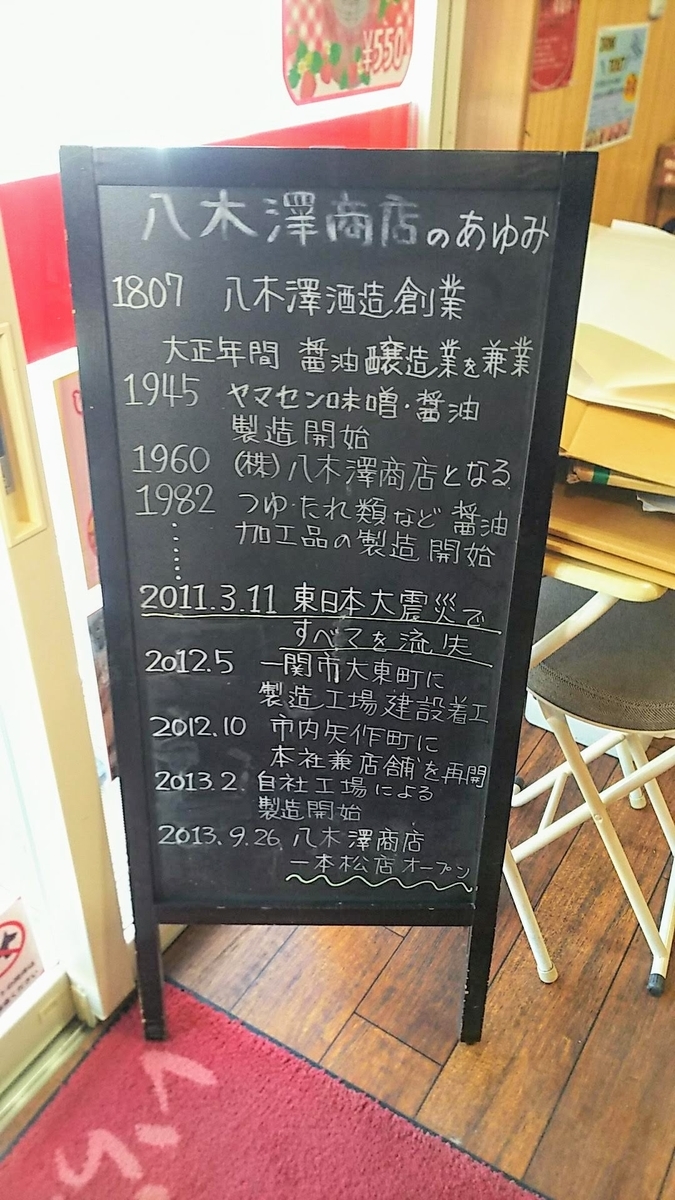 ¥550
八木澤商店のあゆみ
1807 八木澤酒造創業
大正年間 醤油醸造業を兼業
1945 ヤマセン味噌・醤油
製造開始
1960 (株)八木澤商店となる
1982 つゆ・たれ類など醤油
加工品の製造開始
2011.3.11 東日本大震災で
すべてを流失
2012.5 一関市大東町に
製造工場建設着工
2012.10 市内矢作町に
本社兼店舗を再開
2013.2 自社工場による
製造開始
2013.9.26 八木澤商店
一本松店オープン